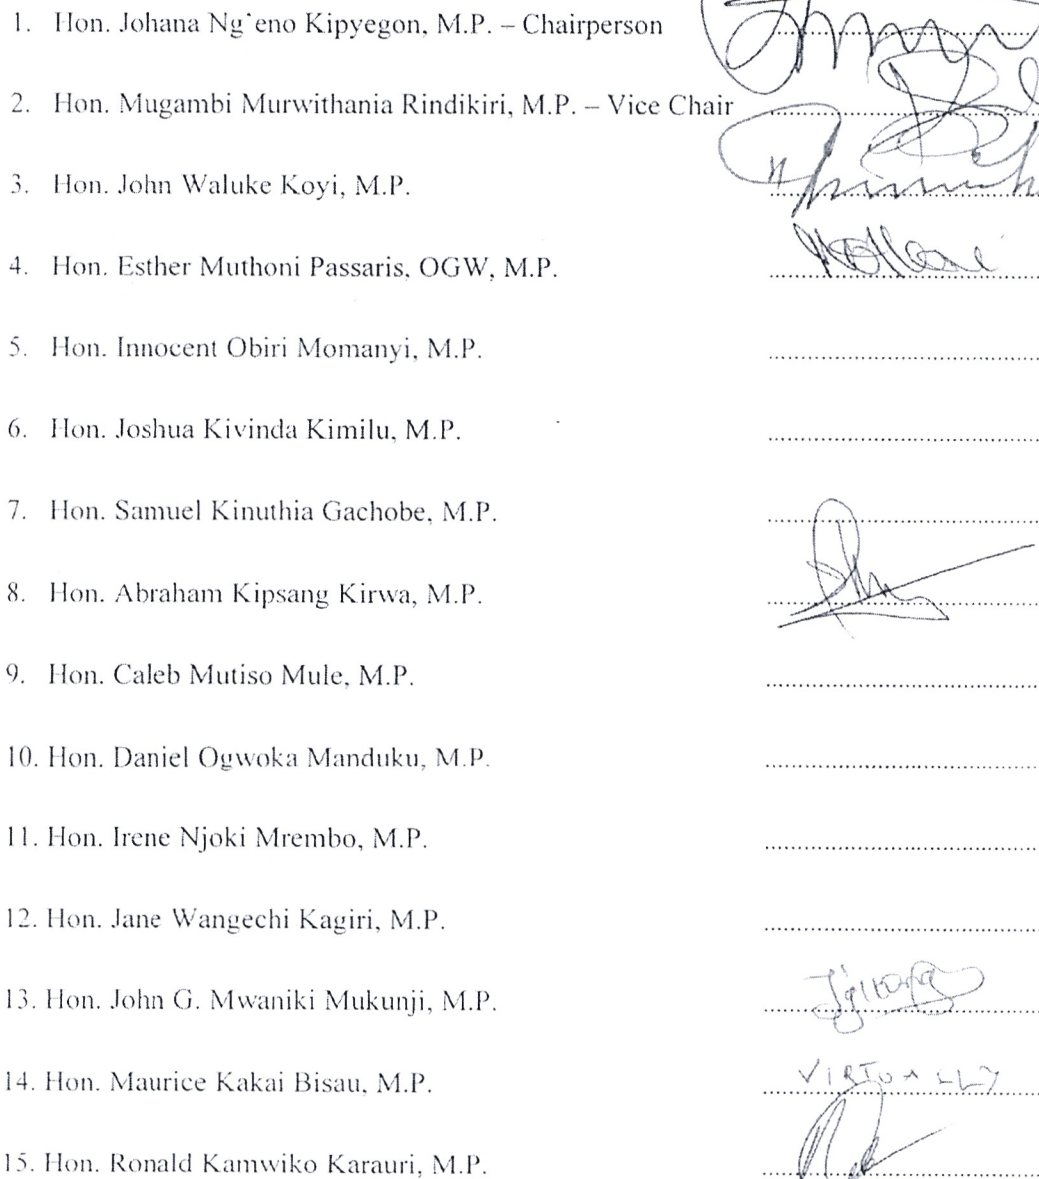 1. Hon. Johana Ng`eno Kipyegon, M.P. – Chairperson
2. Hon. Mugambi Murwithania Rindikiri, M.P. – Vice Chair
3. Hon. John Waluke Koyi, M.P.
4. Hon. Esther Muthoni Passaris, OGW, M.P.
5. Hon. Innocent Obiri Momanyi, M.P.
6. Hon. Joshua Kivinda Kimilu, M.P.
7. Hon. Samuel Kinuthia Gachobe, M.P.
8. Hon. Abraham Kipsang Kirwa, M.P.
9. Hon. Caleb Mutiso Mule, M.P.
10. Hon. Daniel Ogwoka Manduku, M.P.
11. Hon. Irene Njoki Mrembo, M.P.
12. Hon. Jane Wangechi Kagiri, M.P.
13. Hon. John G. Mwaniki Mukunji, M.P.
14. Hon. Maurice Kakai Bisau, M.P. VIRTUALLY
15. Hon. Ronald Kamwiko Karauri, M.P.